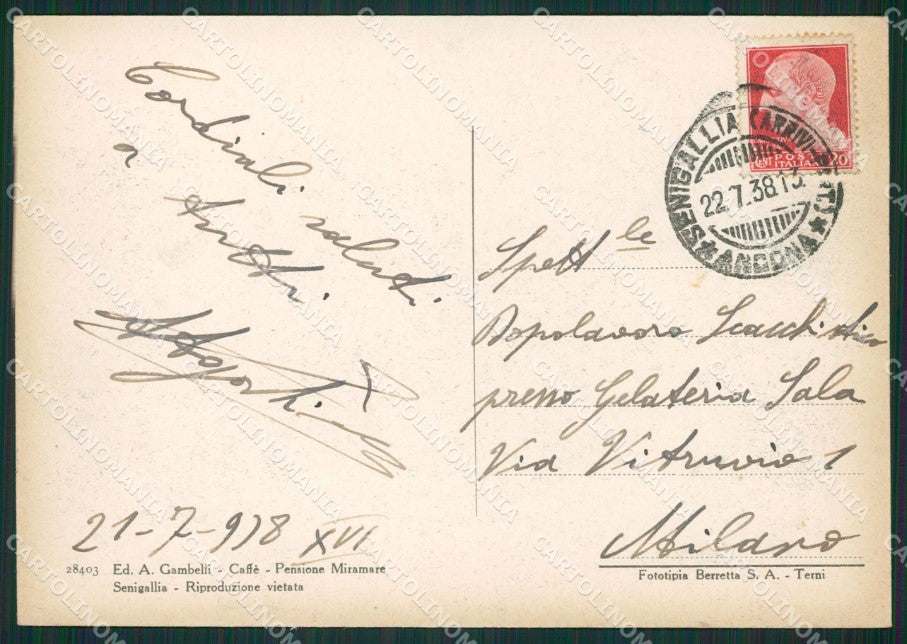 Cordiali saluti
a tutti.
21-7-938 XVI
28403 Ed. A. Gambelli - Caffè - Pensione Miramare
Senigallia - Riproduzione vietata
SENIGALLIA (ARRIVI
22.7.38.13
ANCONA
POSTE
ITALIANE
20
Spett le
Dopolavoro Scacchistico
presso Gelateria Sala
Via Vitruvio 1
Milano
Fototipia Berretta S. A. - Terni
CARTOLINOMANIA